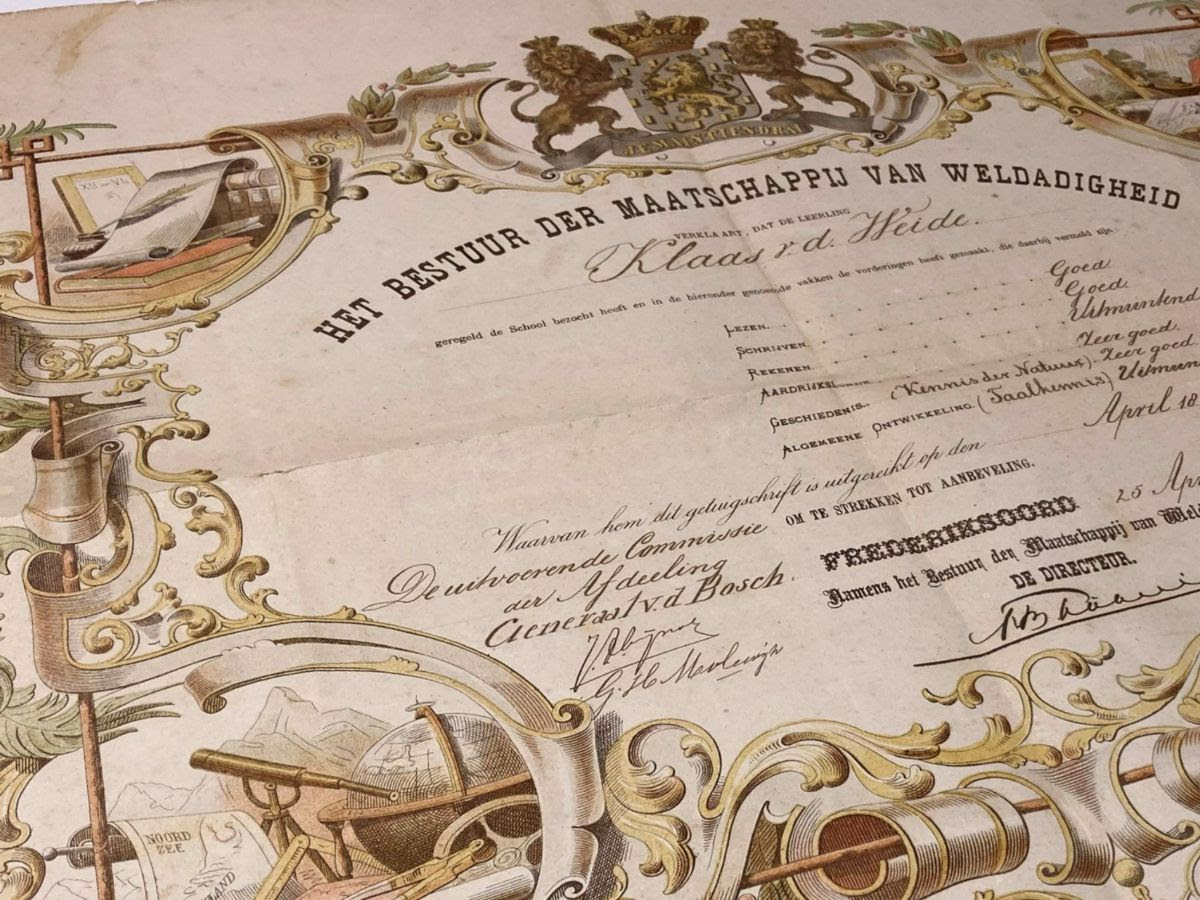 JE MAINTIENDRAI
XII — VI
HET BESTUUR DER MAATSCHAPPIJ VAN WELDADIGHEID
VERKLAART, DAT DE LEERLING
Klaas v. d. Weide.
geregeld de School bezocht heeft en in de hieronder genoemde vakken de vorderingen heeft gemaakt, die daarbij vermeld zijn:
LEZEN. Goed
SCHRIJVEN. Goed.
REKENEN. Uitmuntend
Zeer goed.
GESCHIEDENIS. (Kennis der Natuur). Zeer goed.
ALGEMEENE ONTWIKKELING. (Taalkennis)
April 18
Waarvan hem dit getuigschrift is uitgereikt op den
OM TE STREKKEN TOT AANBEVELING.
De uitvoerende Commissie
der Afdeeling
Generaal v. d Bosch.
FREDERIKSOORD 25
Namens het Bestuur den Maatschappij van
DE DIRECTEUR.
NOORD
ZEE